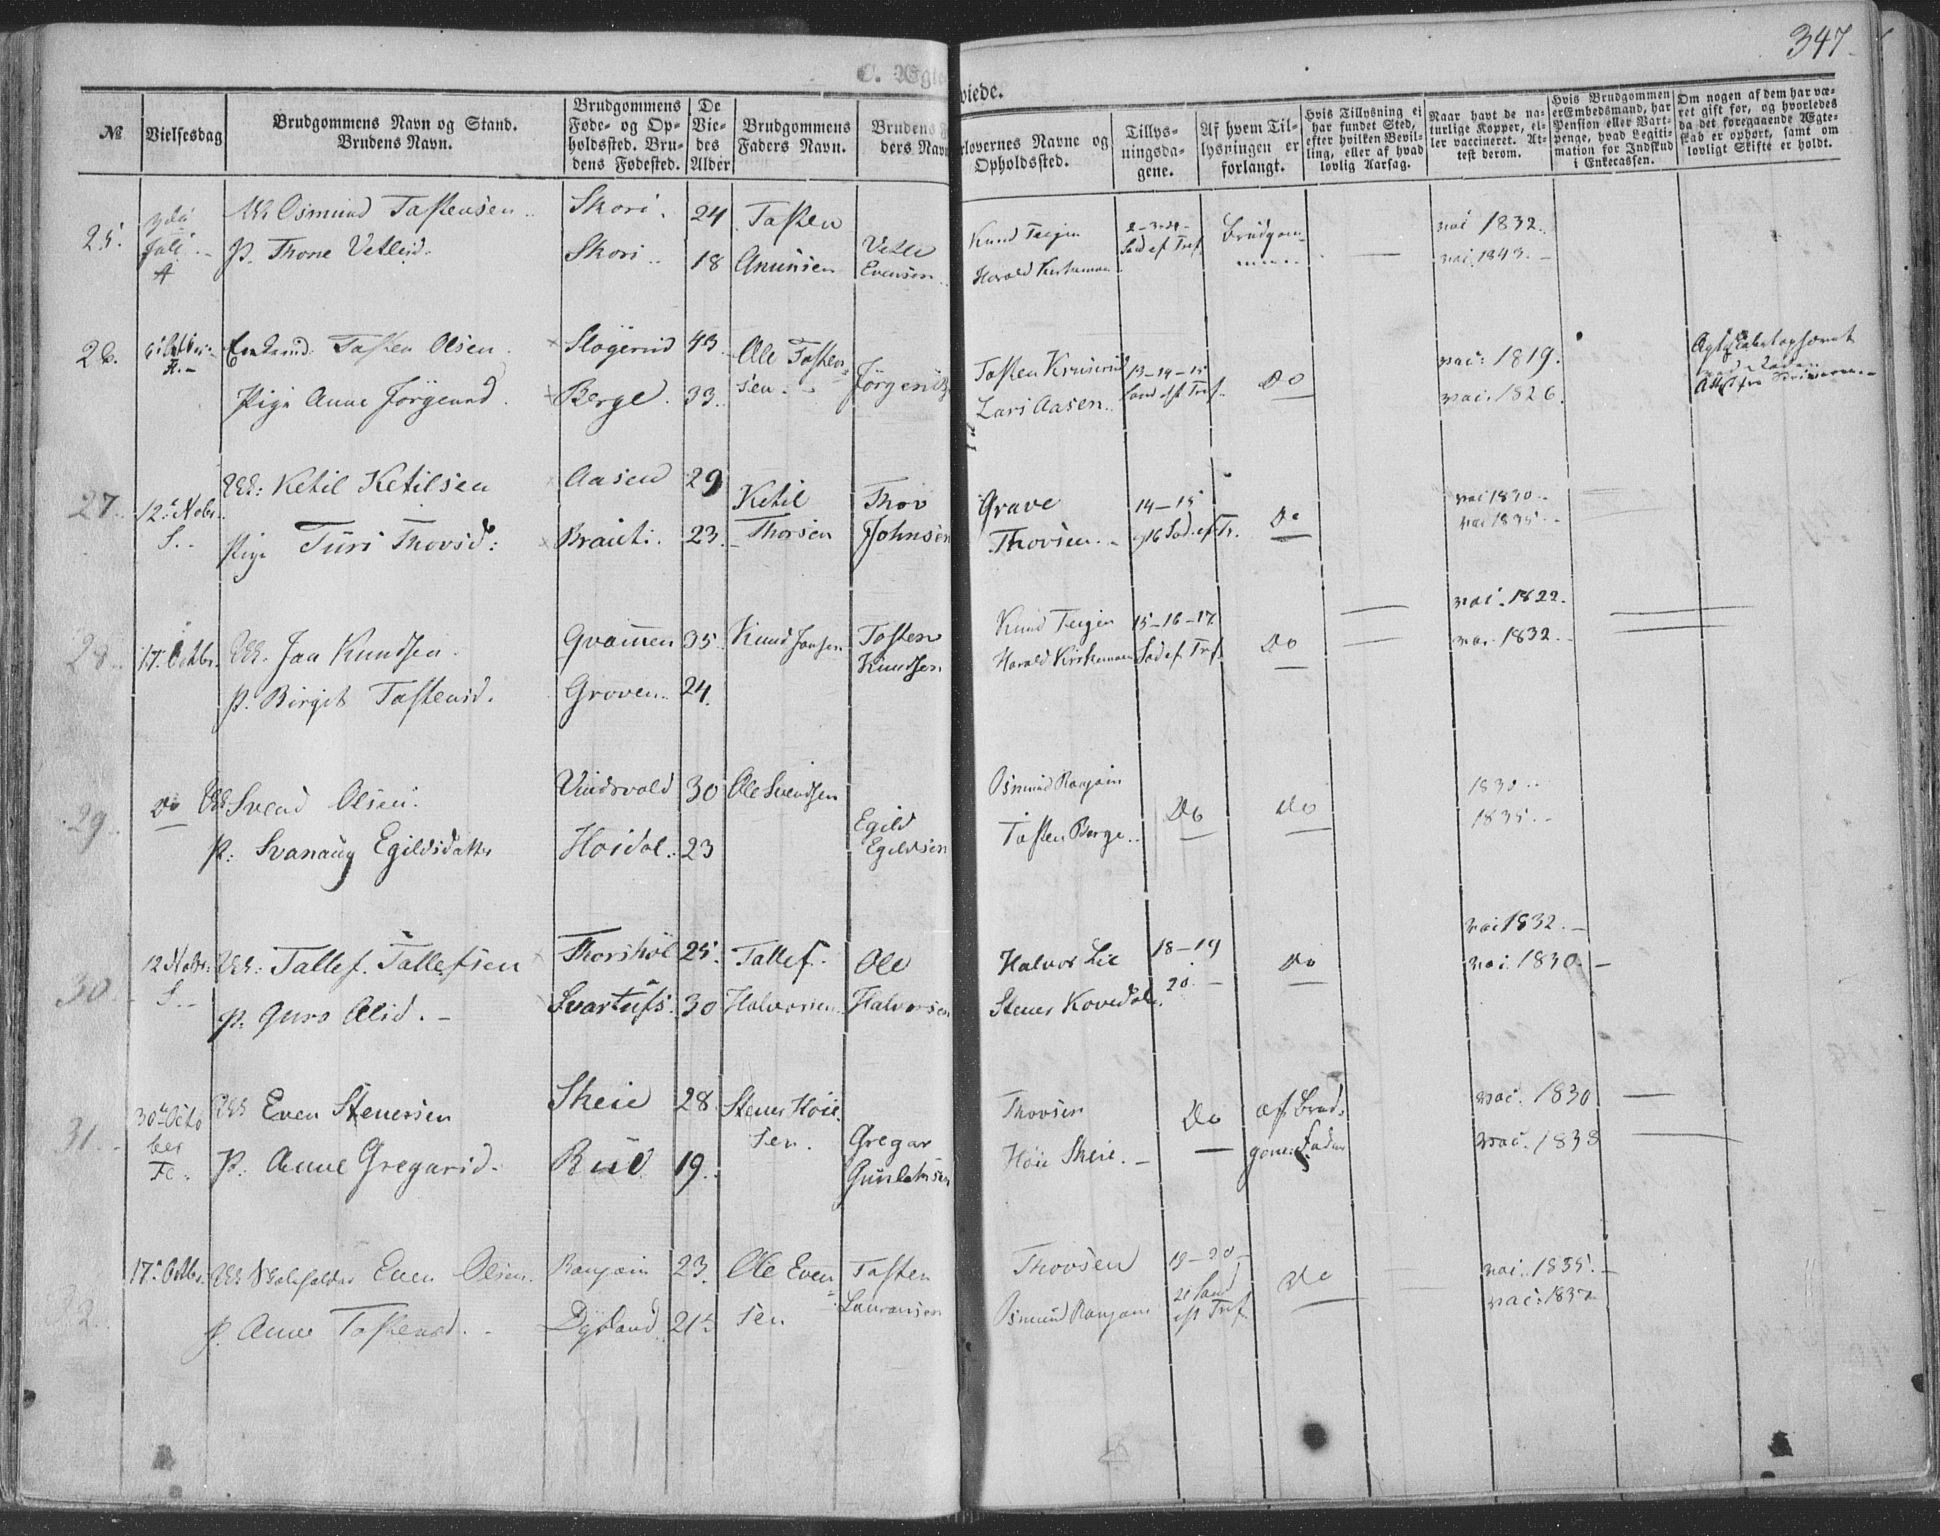 347
C. Ægte
viede.
№
Vielsesdag
Brudgommens Navn og Stand.
Brudens Navn.
Brudgommens
Føde- og Op-
holdssted. Bru-
dens Fødested.
De
Vie-
des
Alder
Brudgommens
Faders Navn.
Brudens F
ders Navn
rlovernes Navne og
Opholdssted.
Tillys-
ningsda-
gene.
Af hvem Til-
lysningen er
forlangt.
Hvis Tillysning ei
har fundet Sted,
efter hvilken Bevil-
ling, eller af hvad
lovlig Aarsag.
Naar havt de na-
turlige Kopper, el-
ler vaccineret. At-
test derom.
Hvis Brudgommen
er Embedsmand, har
Pension eller Vart-
penge, hvad Legiti-
mation for Indskud
i Enkecassen.
Om nogen af dem har væ-
ret gift før, og hvorledes
da det foregaaende Ægte-
skab er ophørt, samt om
lovligt Skifte er holdt.
25.
Juli
Osmund Tastensen
P. Thone Vetleid.
Skori.
Skori
24
18
Tasten
Anunsen
Vetle
Evensen
Knud Teigen
Harald Kirkeman
2-3-4-
Brudgom
vai 1832.
vai. 1843.
26.
Tasten Olsen
Pige Anne Jörgensd.
Slogerud
Berge.
43
33.
Ole Tasten
sen.
Jörgen
Tasten Kruserud
Lars Aasen.
13-14-15
Do
vai: 1819.
vai. 1826.
27.
12. Nobr.
S.
Uk: Ketil Ketilsen
Pige Turi Thovsd:
Aasen
Brauti.
29
23.
Ketil
Thorsen
Thov
Johnsen
Grave
Thovsen.
14-15
Do
vai 1830.
vai 1835.
28.
17. Octbr.
Uk. Jan Knudsen.
P. Birgit Tastensd.
Gvammen
Groven.
35.
24.
Knud Jansen
Tasten
Knudsen
Knud Teigen
Harald Kirkeman
15-16-17
Do
vai. 1822.
vai. 1832.
29.
Do
Uk Svend Olsen.
P: Svanaug Egildsdatter
Vindsvold
Hoidal.
30
23
Ole Svendsen
Egild
Egildsen
Osmund Ranjain
Tasten Berge.
Do
Do
1830
1835.
30.
12 Nobr:
S.
Uk: Tallef. Tallefsen
P. Guro Olsd.
Thorshol
Svartufs.
25.
30
Tallef.
Halvorsen
Ole
Halvorsen
Halvor Lie
Stener Kovedal.
18-19
20.
Do
vai 1832.
vai. 1830.
31.
30te Octo
ber
Uk Even Stenersen
P. Anne Gregarsd.
Skeie
Rue
28
19.
Stener Høie
sen.
Gregar
Gunlaksen
Thovsen
Høie Skeie.
Do
af Brud.
gom: Fader
vai. 1830
vai. 1838
32.
17. Octbr.
Uk Even Olsen.
P. Anne Tastensd.
Ranjain
Dyrland
23.
21½
Ole Even
sen
Tasten
Lauransen
Thovsen
Osmund Ranjain
19-20
Do
vai. 1835.
vai: 1837